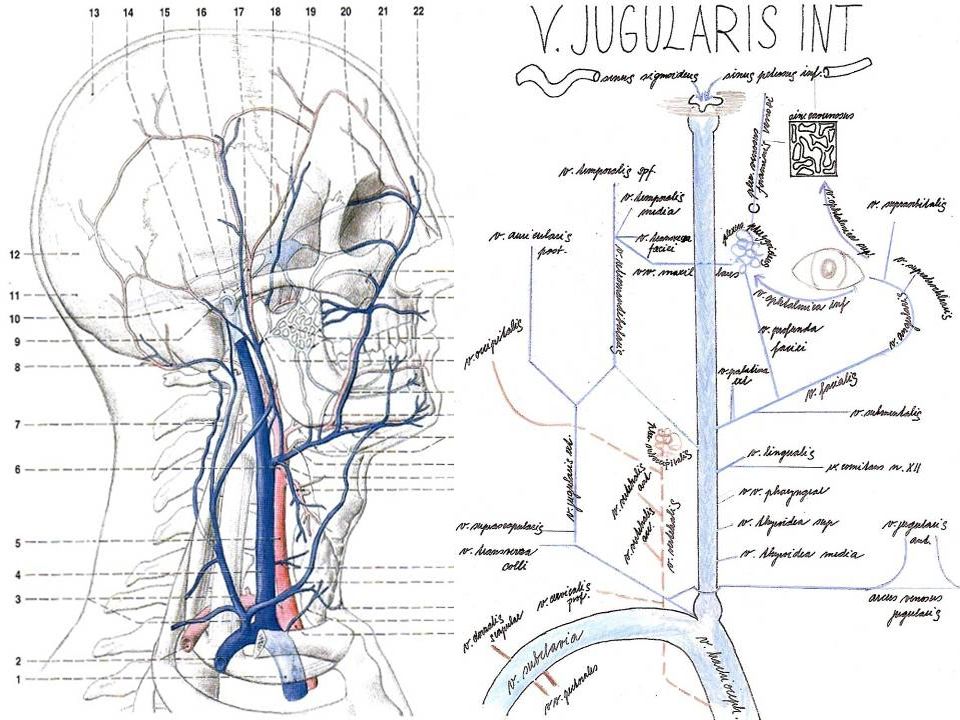 13 14 15 16 17 18 19 20 21 22
12
11
10
9
8
7
6
5
4
3
2
1
V. JUGULARIS INT
sinus sigmoideus
sinus petrosus inf.
plex. venosus
foraminis
sin. cavernosus
v. temporalis spf.
v. temporalis
media
v. transversa
faciei
vv. maxil
lares
v. auricularis
post.
v. retromandibularis
plexus
pterygoideus
v. ophtalmica sup.
v. supraorbitalis
v. supratrochlearis
v. angularis
v. ophtalmica inf
v. profunda
faciei
v. occipitalis
v. palatina
ext
v. facialis
v. submentalis
v. lingualis
v. comitans n. XII
vv. pharyngeae
v. thyroidea sup
v. thyroidea media
v. jugularis
ant.
arcus venosus
jugularis
v. jugularis ext.
v. vertebralis
ant.
v. vertebralis
acc.
v. vertebralis
v. suprascapularis
v. transversa
colli
v. cervicalis
prof.
v. dorsalis
scapulae
v. subclavia
vv. pectorales
v. brachioceph.